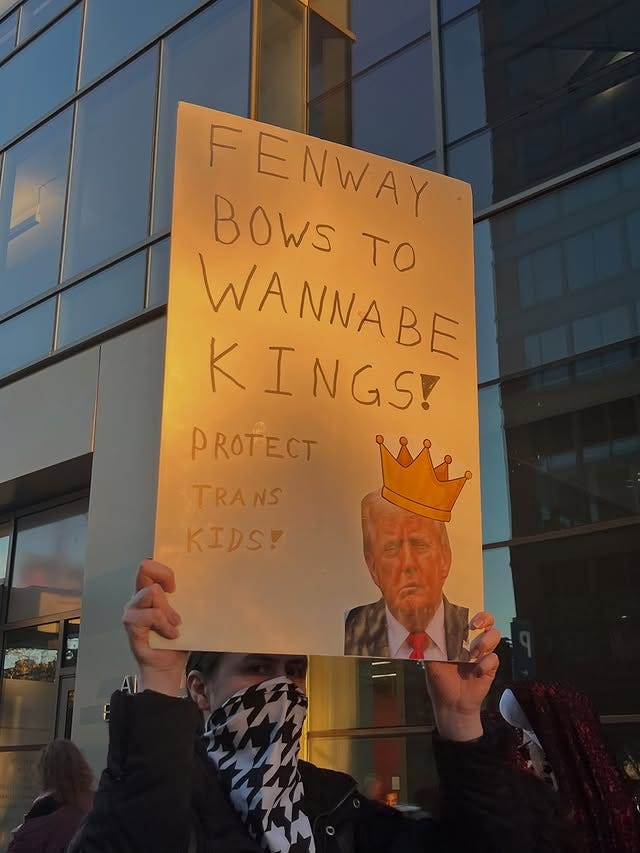 FENWAY
BOWS TO
WANNABE
KINGS!
PROTECT
TRANS
KIDS!
P